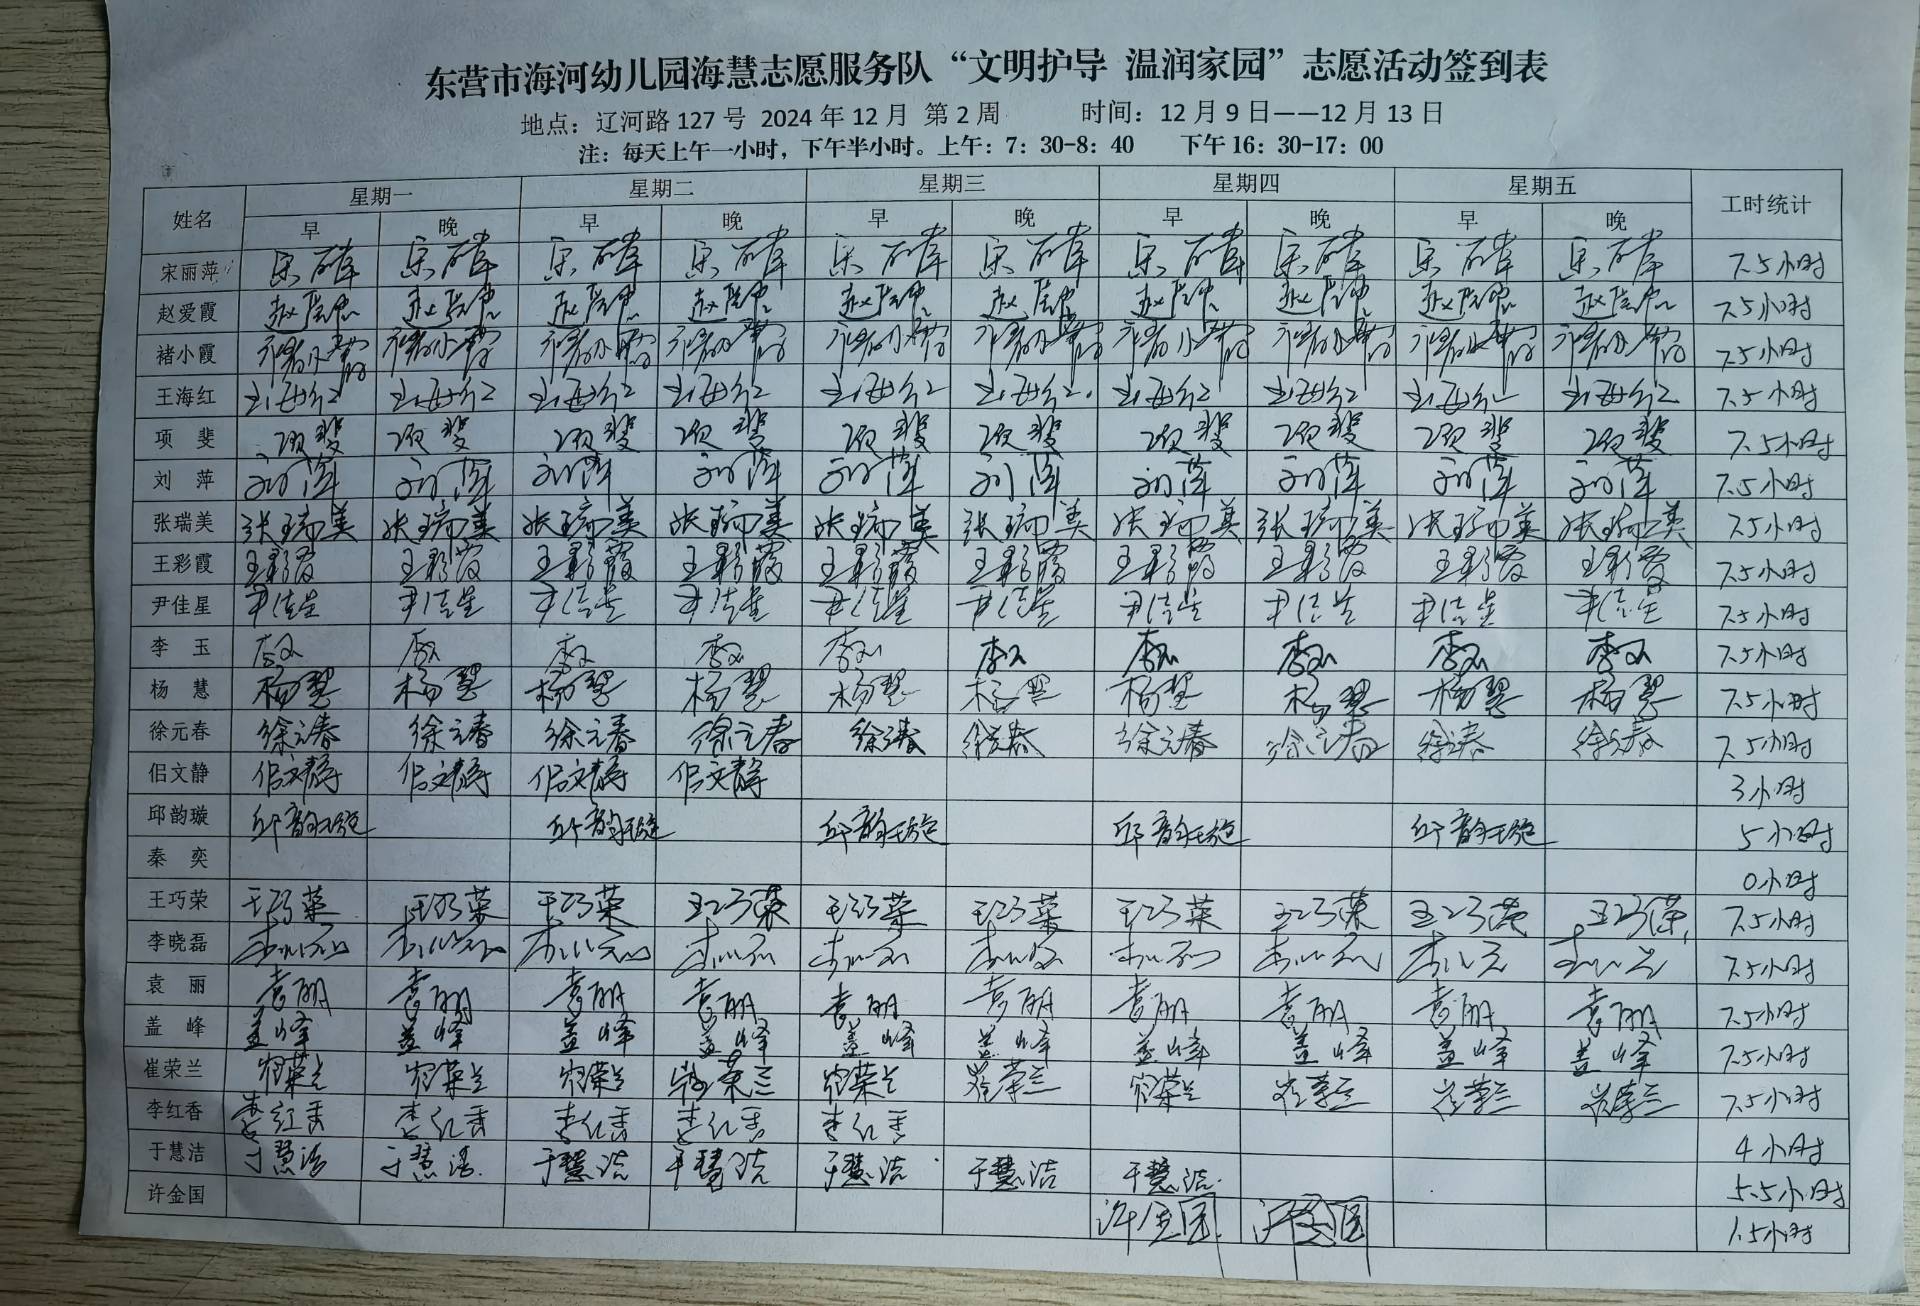 东营市海河幼儿园海慧志愿服务队“文明护导 温润家园”志愿活动签到表
地点：辽河路 127 号 2024 年 12 月 第 2 周 时间：12 月 9 日——12 月 13 日
注：每天上午一小时，下午半小时。上午：7：30-8：40 下午 16：30-17：00
姓名 星期一 星期二 星期三 星期四 星期五 工时统计
早 晚 早 晚 早 晚 早 晚 早 晚
宋丽萍 7.5小时
赵爱霞 7.5小时
褚小霞 褚小霞 褚小霞 褚小霞 褚小霞 褚小霞 褚小霞 褚小霞 褚小霞 褚小霞 褚小霞 7.5小时
王海红 王海红 王海红 王海红 王海红 王海红 王海红 王海红 王海红 王海红 王海红 7.5小时
项 斐 项斐 项斐 项斐 项斐 项斐 项斐 项斐 项斐 项斐 项斐 7.5小时
刘 萍 刘萍 刘萍 刘萍 刘萍 刘萍 刘萍 刘萍 刘萍 刘萍 刘萍 7.5小时
张瑞美 张瑞美 张瑞美 张瑞美 张瑞美 张瑞美 张瑞美 张瑞美 张瑞美 张瑞美 张瑞美 7.5小时
王彩霞 王彩霞 王彩霞 王彩霞 王彩霞 王彩霞 王彩霞 王彩霞 王彩霞 王彩霞 王彩霞 7.5小时
尹佳星 尹佳星 尹佳星 尹佳星 尹佳星 尹佳星 尹佳星 尹佳星 尹佳星 尹佳星 尹佳星 7.5小时
李 玉 李玉 李玉 李玉 李玉 李玉 李玉 李玉 李玉 李玉 李玉 7.5小时
杨 慧 杨慧 杨慧 杨慧 杨慧 杨慧 杨慧 杨慧 杨慧 杨慧 杨慧 7.5小时
徐元春 徐元春 徐元春 徐元春 徐元春 徐元春 徐元春 徐元春 徐元春 徐元春 徐元春 7.5小时
佀文静 佀文静 佀文静 佀文静 佀文静 3小时
邱韵璇 邱韵璇 邱韵璇 邱韵璇 邱韵璇 邱韵璇 5小时
秦 奕 0小时
王巧荣 王巧荣 王巧荣 王巧荣 王巧荣 王巧荣 王巧荣 王巧荣 王巧荣 王巧荣 王巧荣 7.5小时
李晓磊 7.5小时
袁 丽 袁丽 袁丽 袁丽 袁丽 袁丽 袁丽 袁丽 袁丽 袁丽 袁丽 7.5小时
盖 峰 盖峰 盖峰 盖峰 盖峰 盖峰 盖峰 盖峰 盖峰 盖峰 盖峰 7.5小时
崔荣兰 崔荣兰 崔荣兰 崔荣兰 崔荣兰 崔荣兰 崔荣兰 崔荣兰 崔荣兰 崔荣兰 崔荣兰 7.5小时
李红香 李红香 李红香 李红香 李红香 李红香 4小时
于慧洁 于慧洁 于慧洁 于慧洁 于慧洁 于慧洁 于慧洁 于慧洁 5.5小时
许金国 许金国 许金国 1.5小时